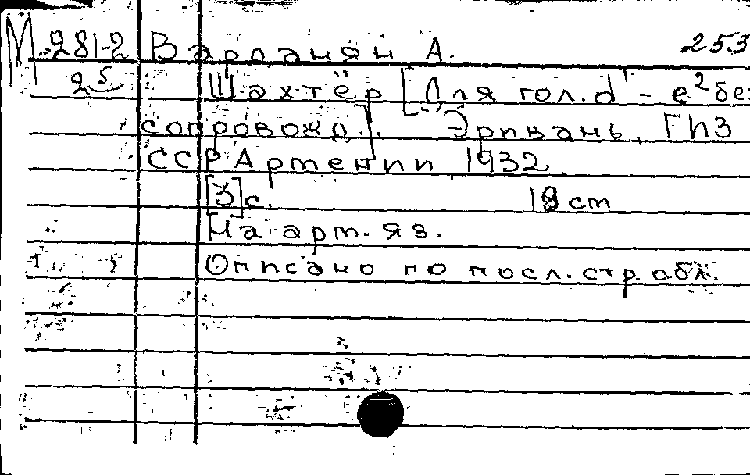 М 281-2 Варданян А. 253
25 Шахтёр [Для гол. d' - e² без
сопровожд.]. Эривань, ГИЗ
ССР Армении 1932
[3] с. 18 cm
На арт. яз.
Описано по посл. стр. обл.